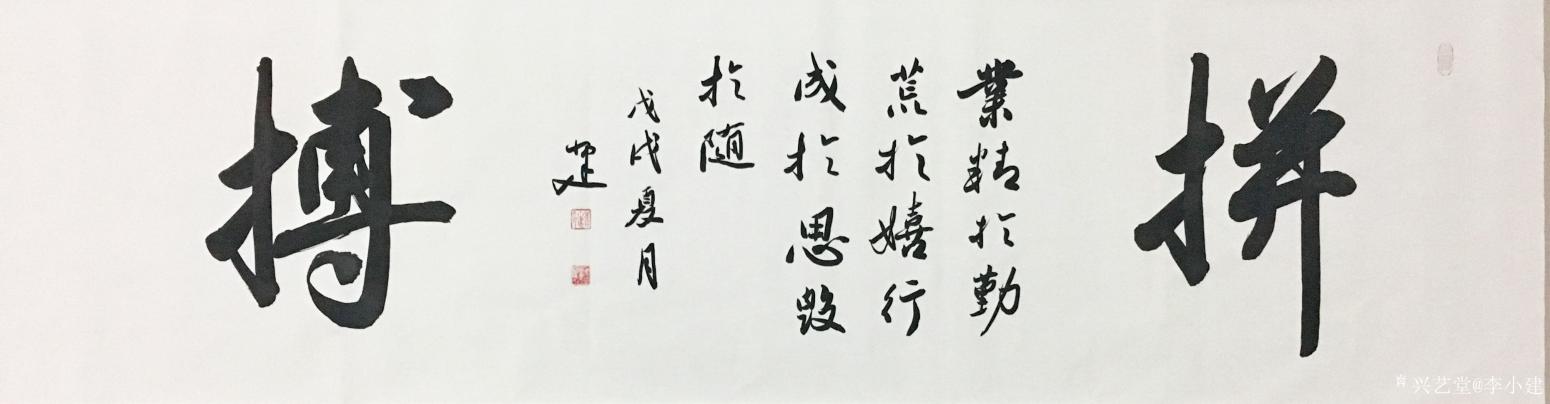 拼
業精於勤
荒於嬉行
成於思毀
於随
戊戌夏月
建
搏
兴艺堂@李小建